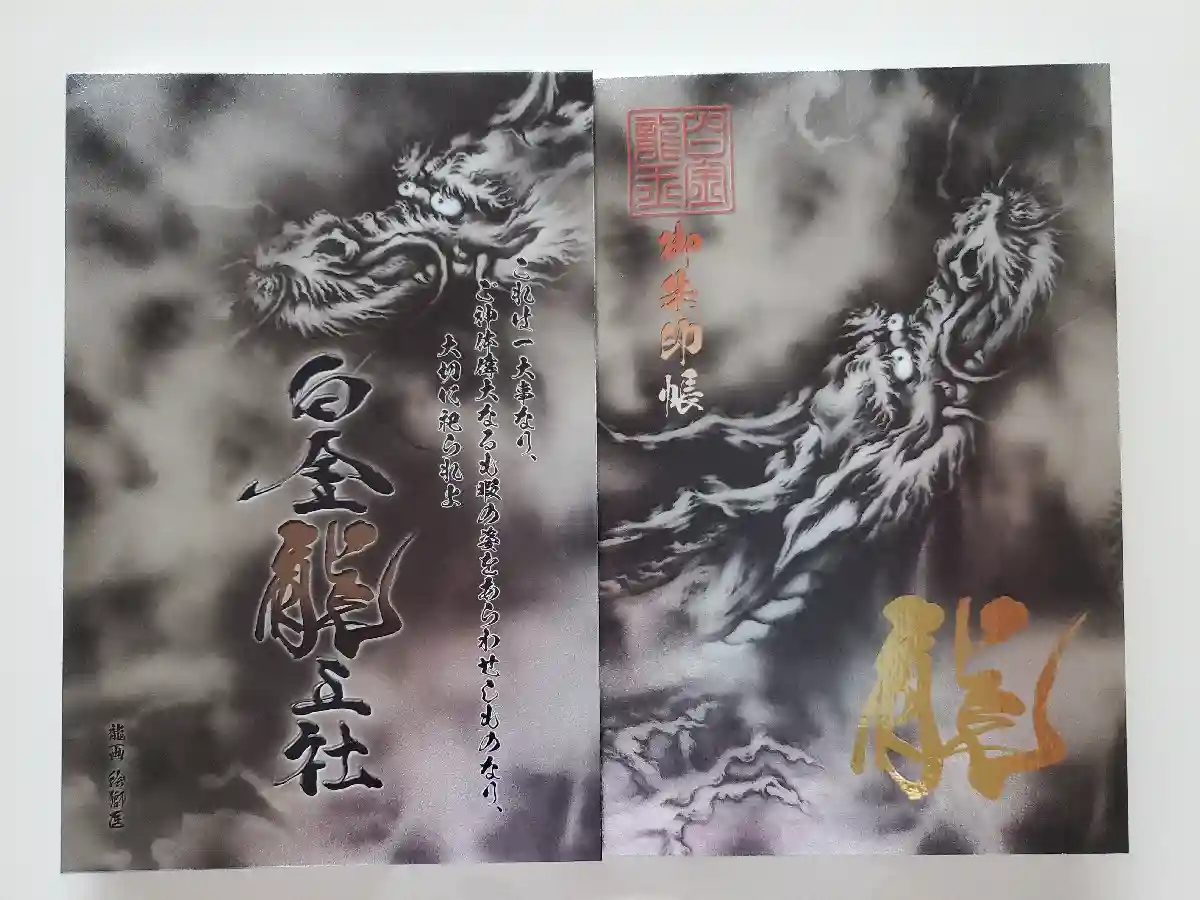 これは一大事なり、
ご神体偉大なるも暇の姿をあらわせしものなり、
大切に祀られよ
白金龍王社
龍画 絵獅匡
白金
龍王
御朱印帳
龍